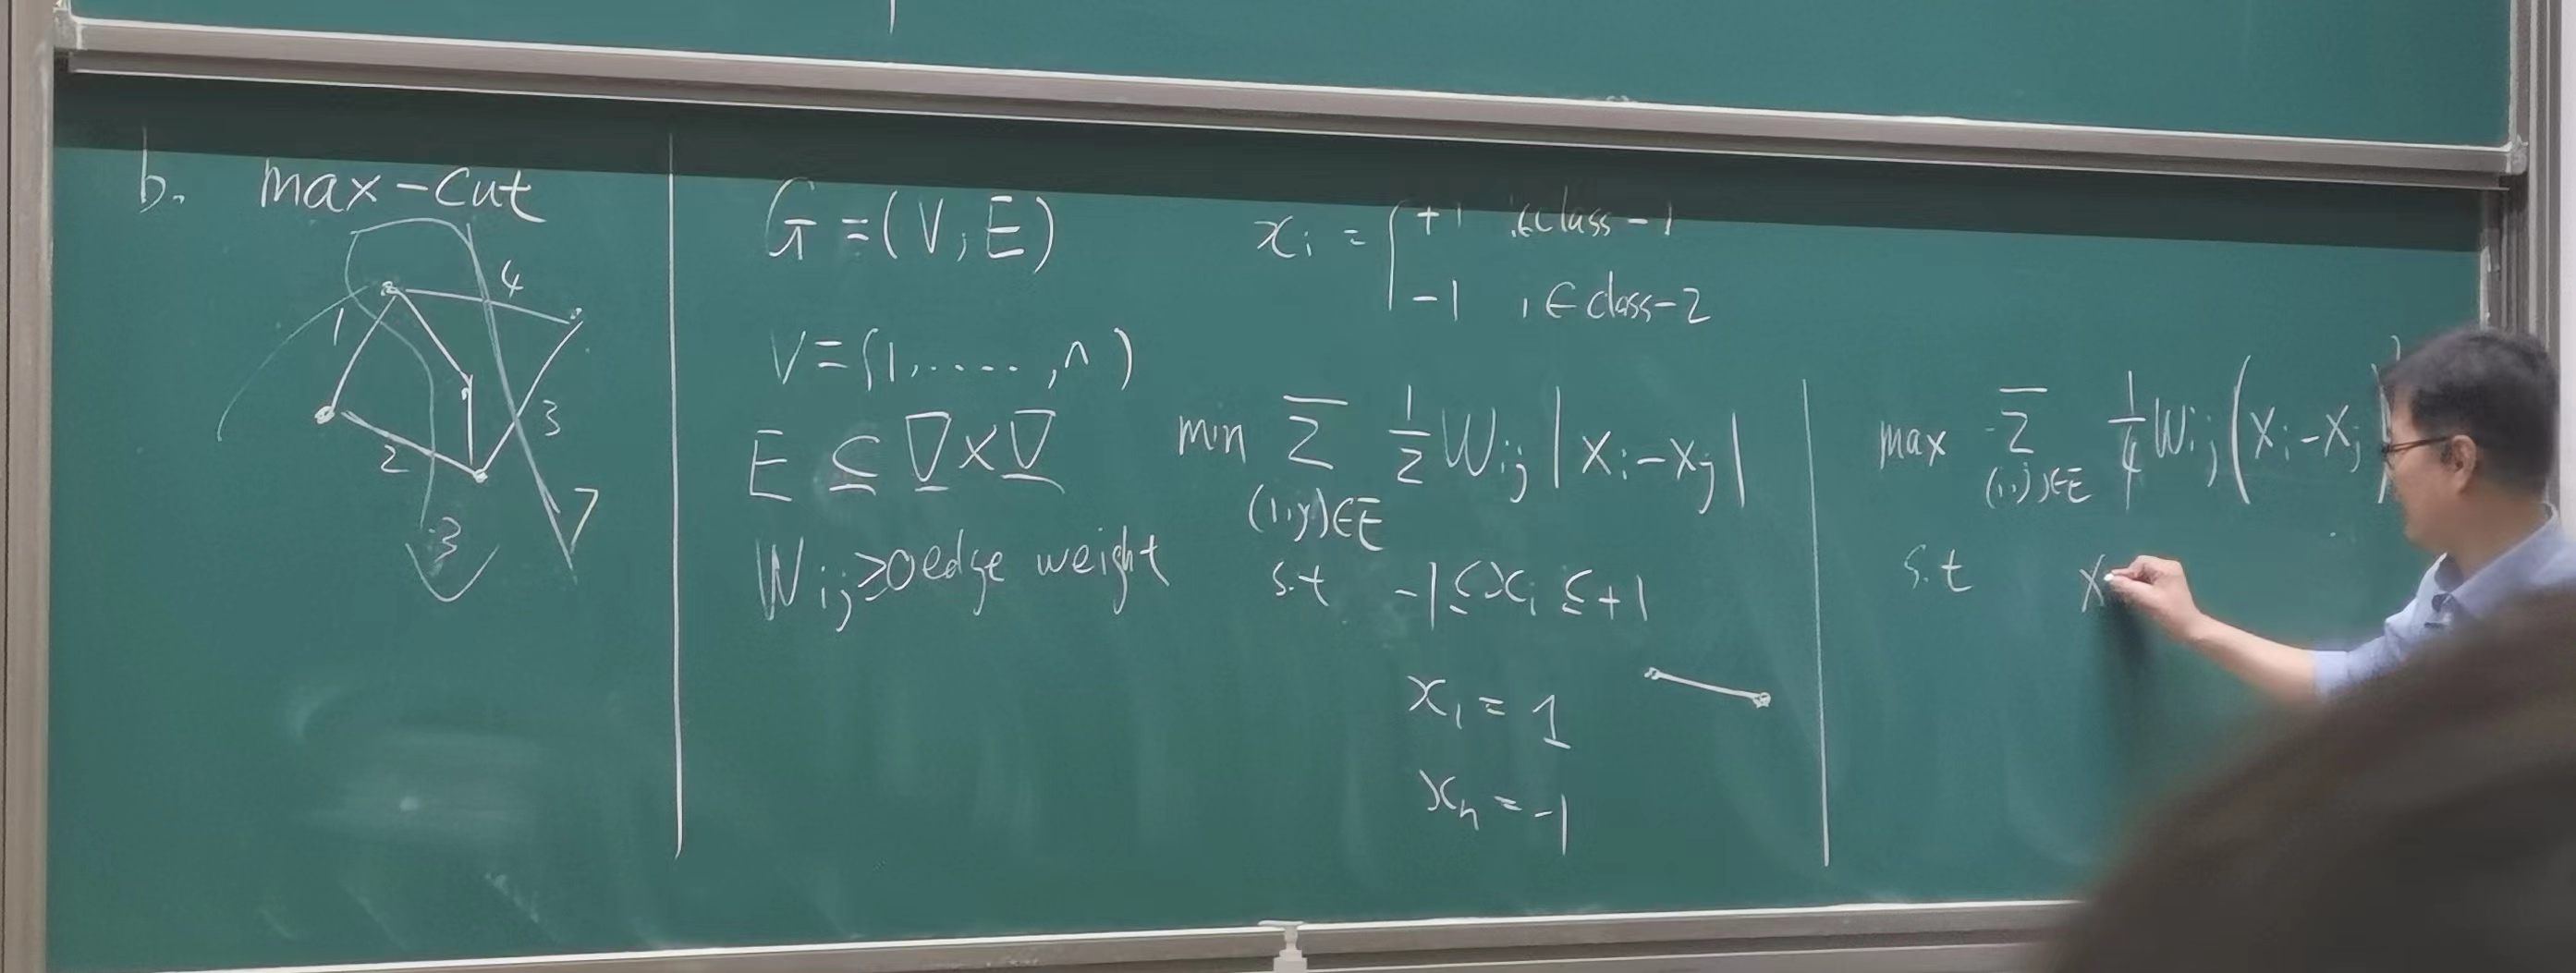 b. max-cut
4
1
3
2
3
7
G=(V,E)
V={1,.....,n)
E ⊆ V×V
Wij≥0 edge weight
xi = { +1 i∈class-1
-1 i∈class-2
min Σ 1/2 Wij |xi-xj|
(i,j)∈E
s.t -1≤xi≤+1
x1 = 1
xn = -1
max Σ 1/4 Wij (xi-xj
(i,j)∈E
s.t x